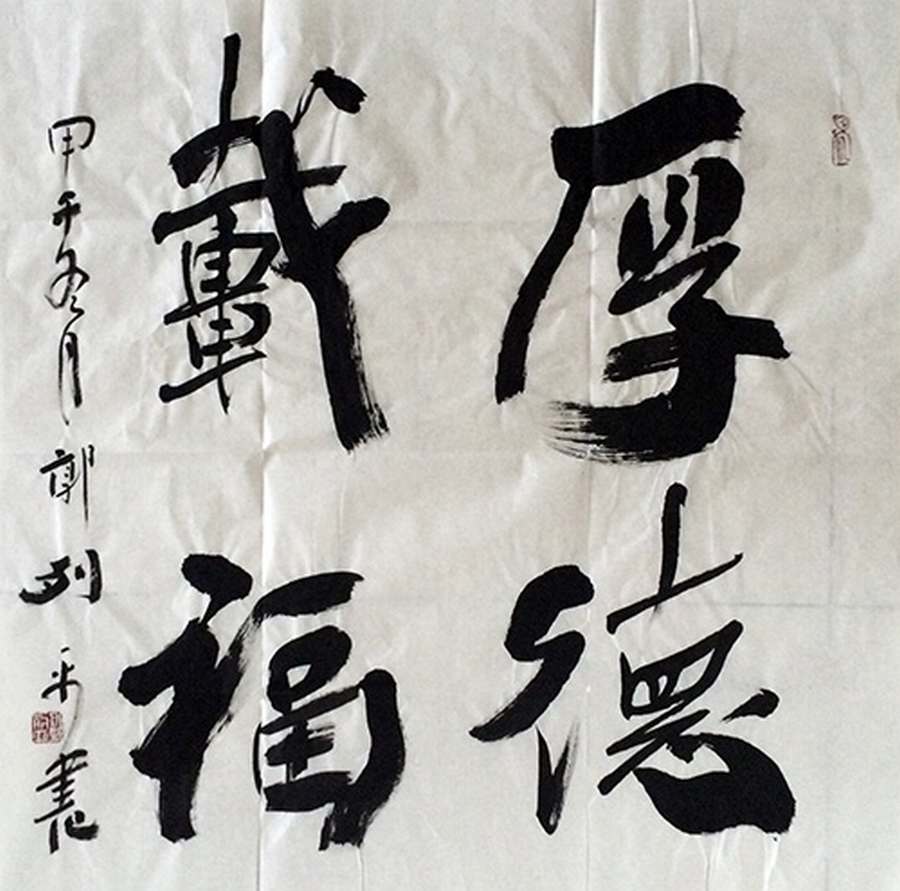 厚德
載福
甲午冬月郭列平書